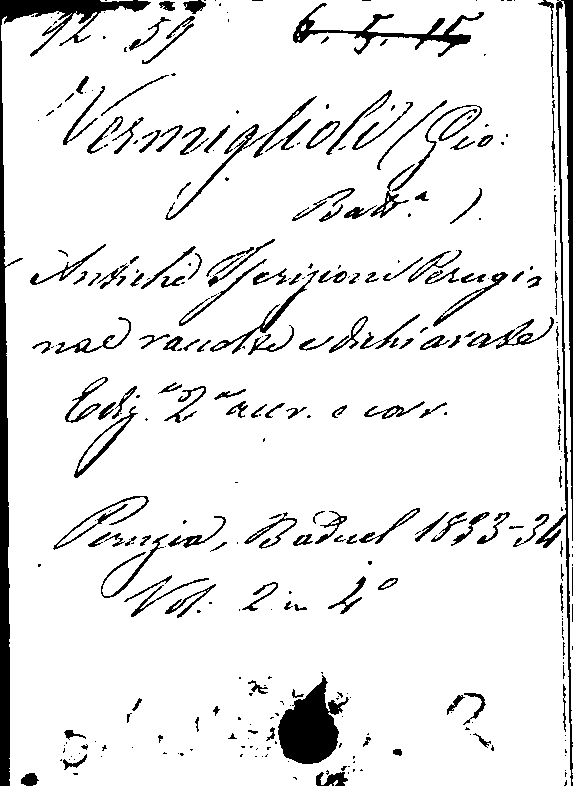 92. 59 6. 5. 15
Vermiglioli (Gio:
Batt.ª ).
Antiche Iscrizioni Perugi-
nae raccolte e dichiarate
Ediz.ª 2ª accr. e corr.
Perugia, Baduel 1833-34
Vol. 2 in 4º